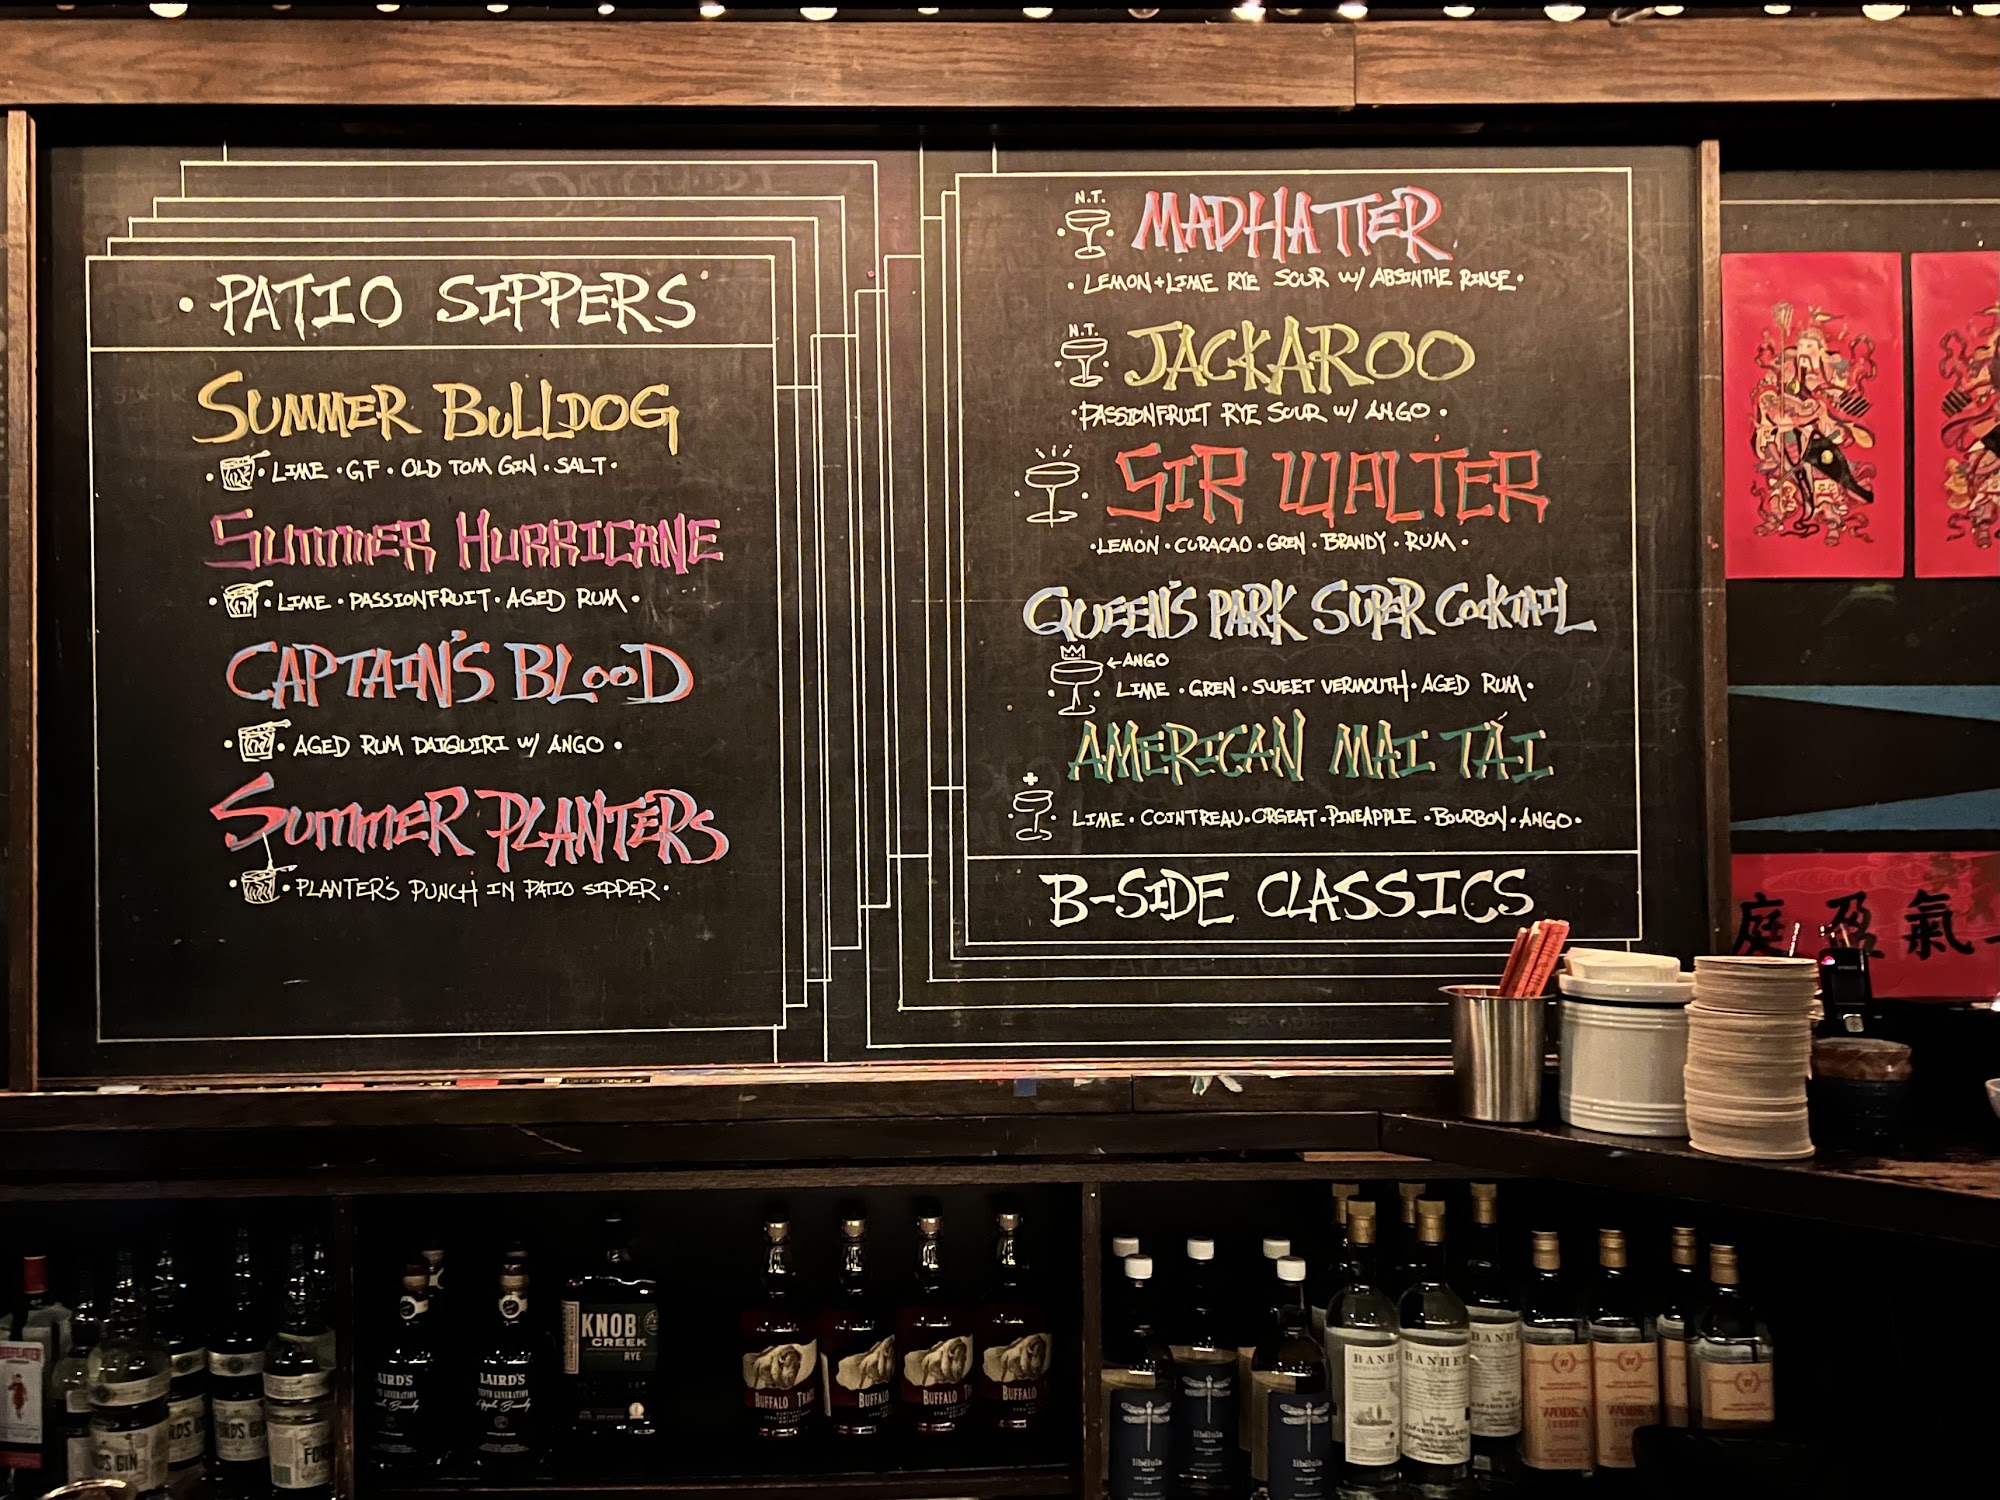 • PATIO SIPPERS •
SUMMER BULLDOG
• LIME • GF • OLD TOM GIN • SALT •
SUMMER HURRICANE
• LIME • PASSIONFRUIT • AGED RUM •
CAPTAIN'S BLOOD
• AGED RUM DAIQUIRI W/ ANGO •
SUMMER PLANTERS
• PLANTER'S PUNCH IN PATIO SIPPER •
N.T.
MADHATTER
• LEMON + LIME RYE SOUR W/ ABSINTHE RINSE •
N.T.
JACKAROO
• PASSIONFRUIT RYE SOUR W/ ANGO •
SIR WALTER
• LEMON • CURACAO • GREN • BRANDY • RUM •
QUEEN'S PARK SUPER COCKTAIL
← ANGO
LIME • GREN • SWEET VERMOUTH • AGED RUM •
AMERICAN MAI TAI
+
LIME • COINTREAU • ORGEAT • PINEAPPLE • BOURBON • ANGO •
B-SIDE CLASSICS
庭盈氣
BEEFEATER
FORD'S GIN
LAIRD'S
TENTH GENERATION
Apple Brandy
KNOB
CREEK
RYE
BUFFALO TRACE
BUFFALO
BUFFALO
BUFFALO
libélula
libélula
libélula
BANHE
BANHE
BANH
WODKA
WODKA